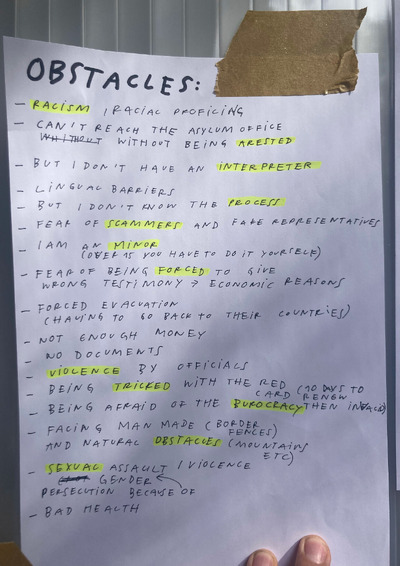 OBSTACLES:
- RACISM / RACIAL PROFICING
- CAN'T REACH THE ASYLUM OFFICE
WHITHOUT WITHOUT BEING ARESTED
- BUT I DON'T HAVE AN INTERPRETER
- LINGUAL BARRIERS
- BUT I DON'T KNOW THE PROCESS
- FEAR OF SCAMMERS AND FAKE REPRESENTATIVES
- I AM AN MINOR
(OVER 15 YOU HAVE TO DO IT YOURSELF)
- FEAR OF BEING FORCED TO GIVE
WRONG TESTIMONY → ECONOMIC REASONS
- FORCED EVACUATION
(HAVING TO GO BACK TO THEIR COUNTRIES)
- NOT ENOUGH MONEY
- NO DOCUMENTS
- VIOLENCE BY OFFICIALS
- BEING TRICKED WITH THE RED CARD (10 DAYS TO RENEW THEN INVALID)
- BEING AFRAID OF THE BUROCRACY
- FACING MAN MADE (BORDER FENCES)
AND NATURAL OBSTACLES (MOUNTAINS ETC)
- SEXUAL ASSAULT / VIOLENCE
GENDER
PERSECUTION BECAUSE OF
- BAD HEALTH